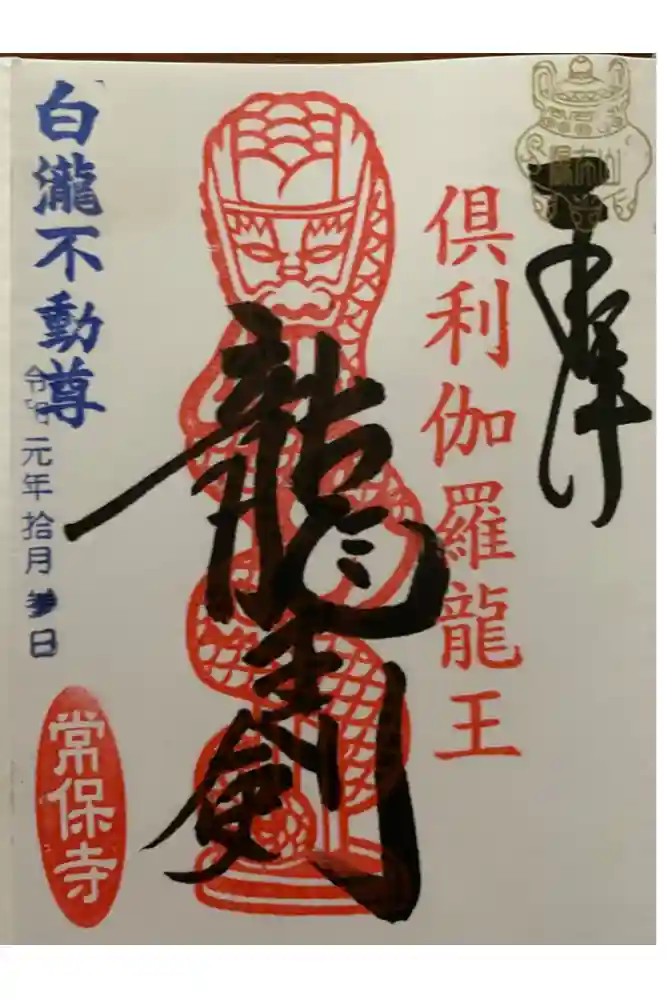 奉拝
倶利伽羅龍王
龍王剣
白瀧不動尊
令和元年拾月参日
常保寺